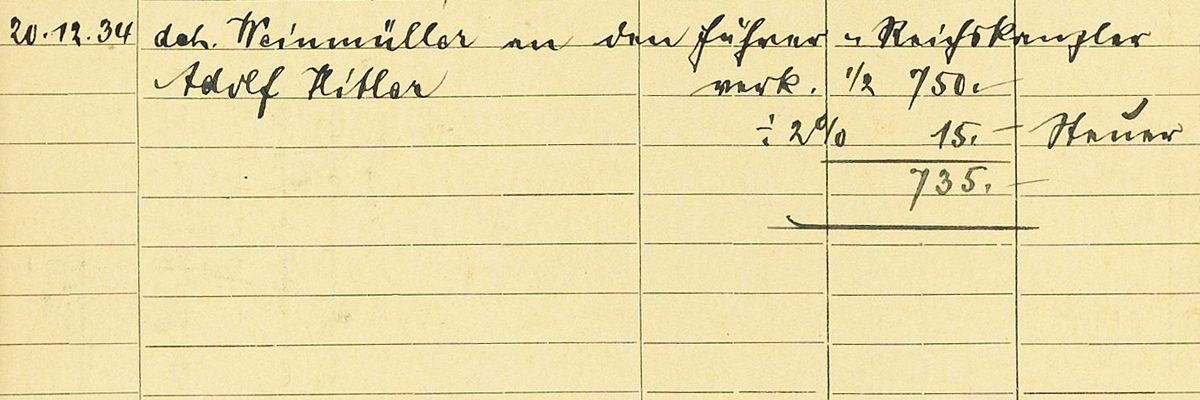 20.12.34 dch. Weinmüller an den Führer u Reichskanzler
Adolf Hitler verk. 1/2 750.-
÷ 2% 15.- Steuer
735.-